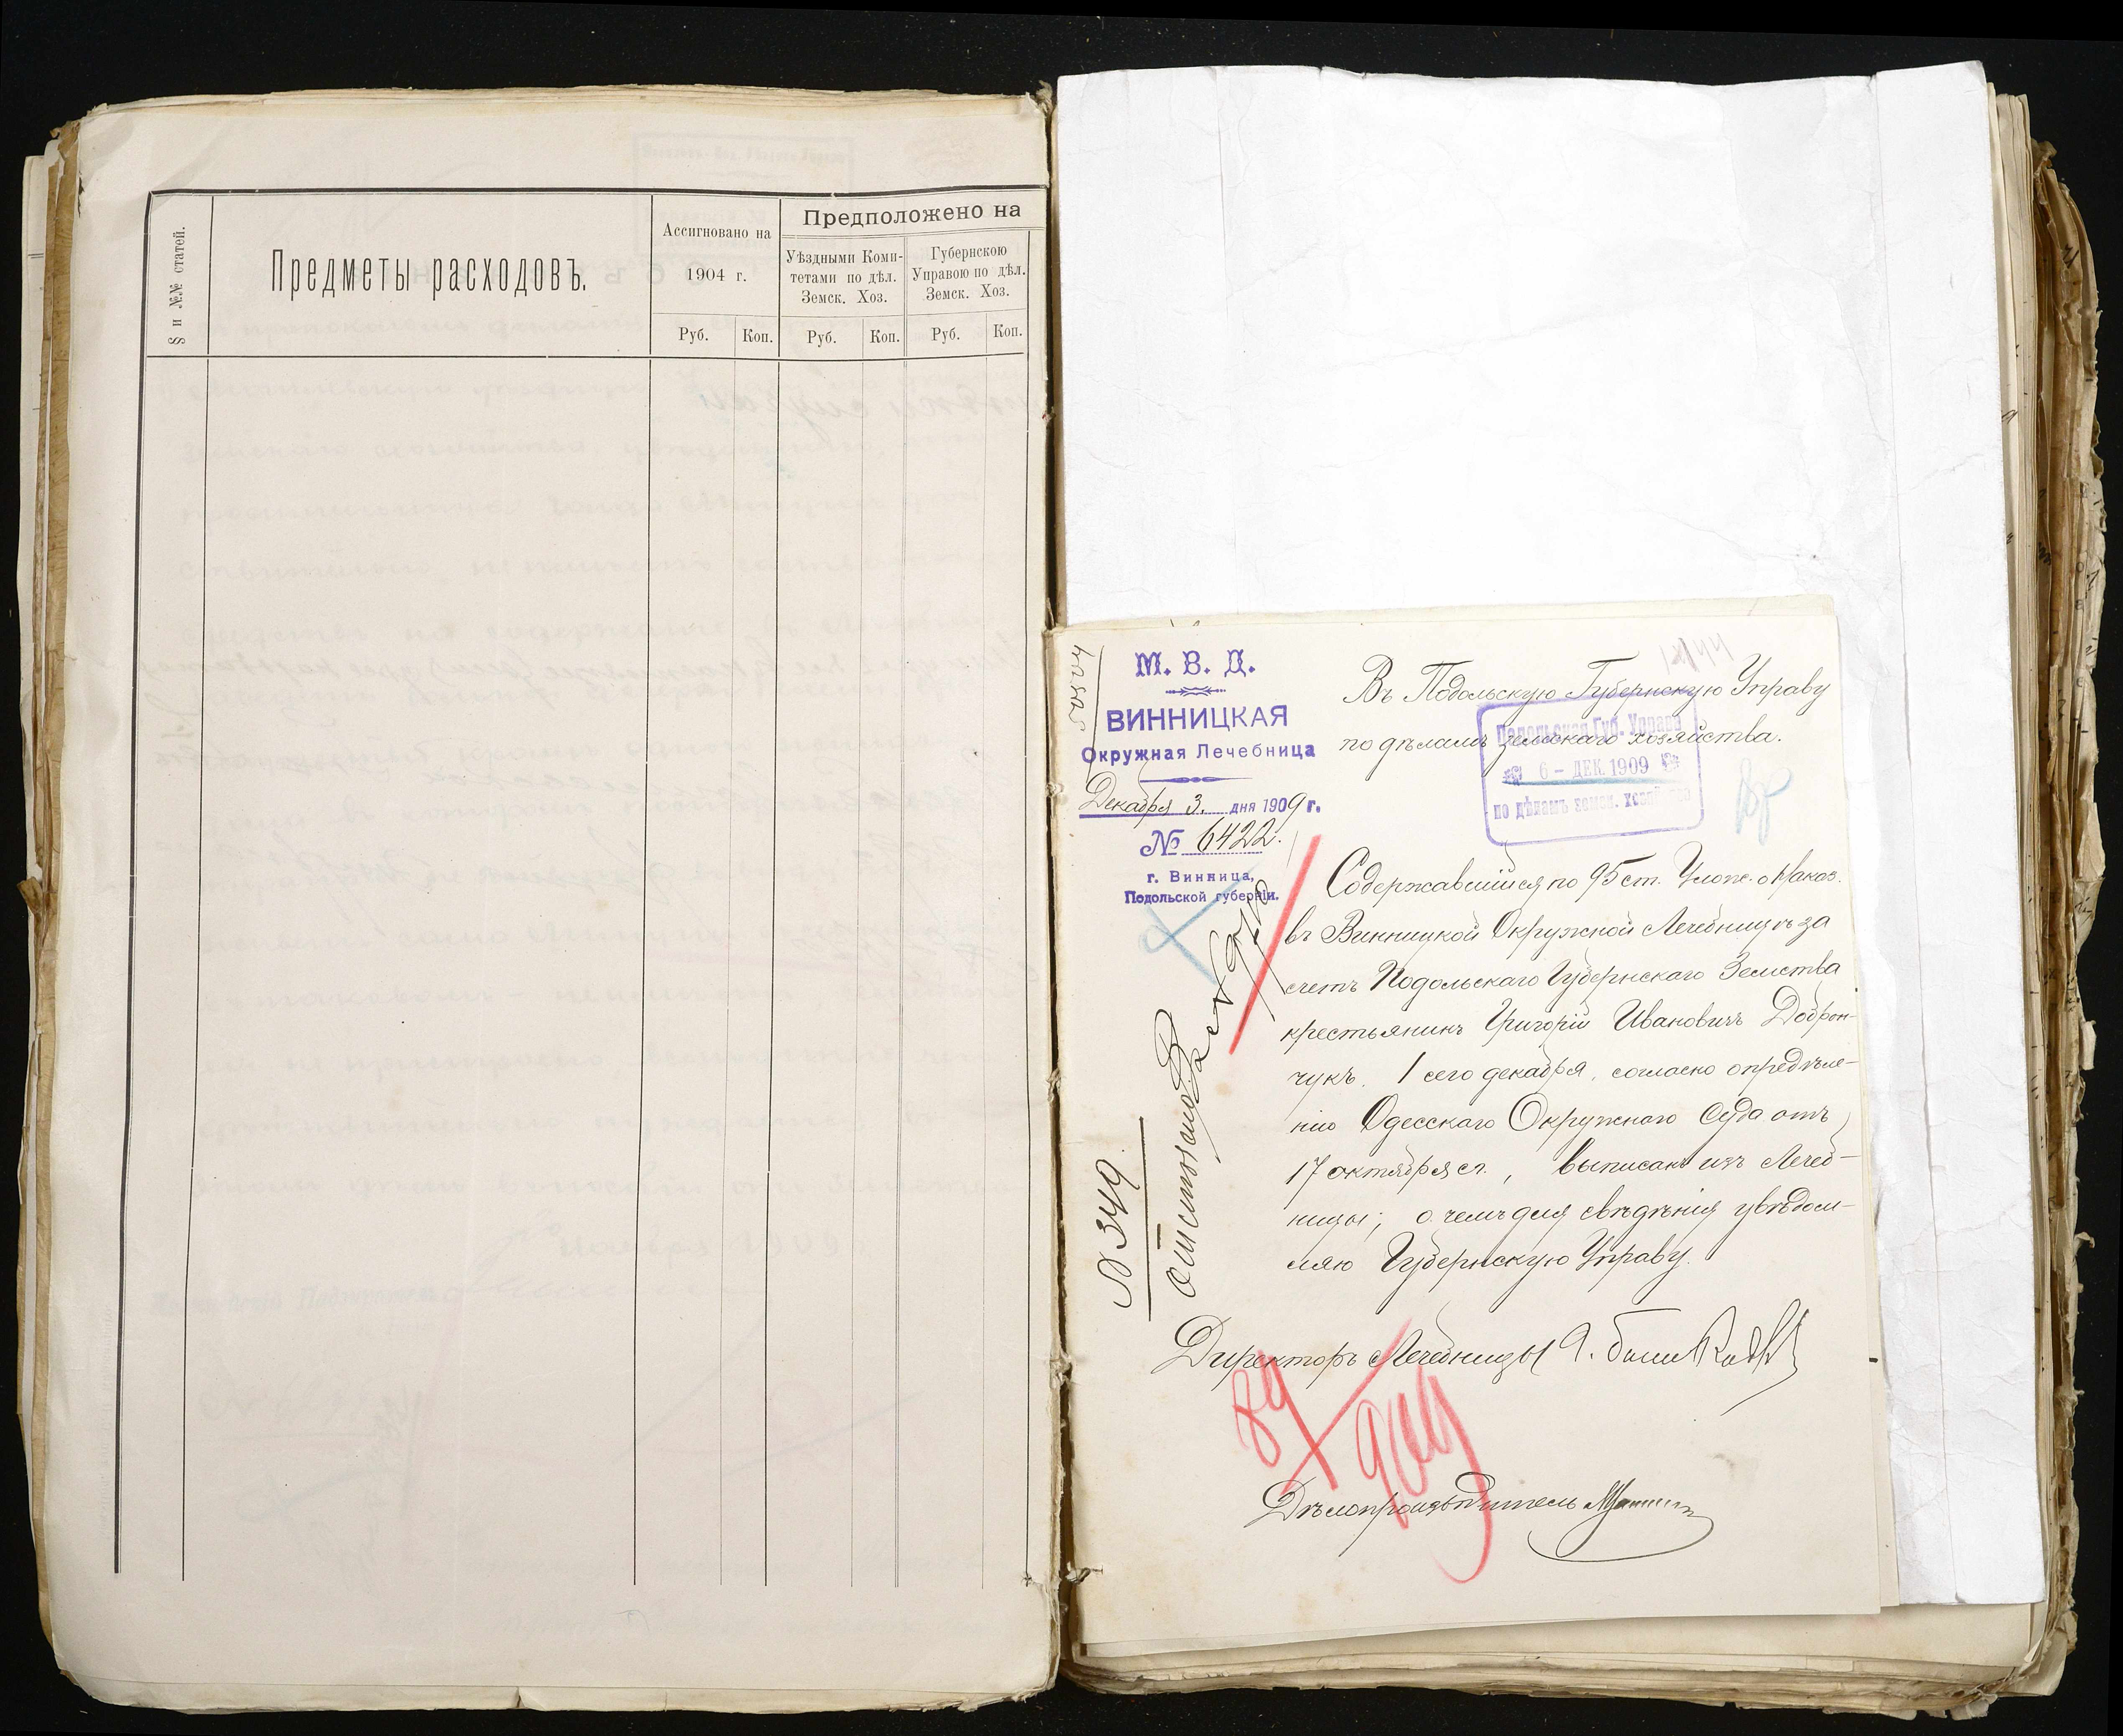 § и №№ статей.
Предметы расходовъ.
Ассигновано на
1904 г.
Руб.
Коп.
Предположено на
Уѣздными Коми-
тетами по дѣл.
Земск. Хоз.
Руб.
Коп.
Губернскою
Управою по дѣл.
Земск. Хоз.
Руб.
Коп.
М. В. Д.
ВИННИЦКАЯ
Окружная Лечебница
Декабря 3. дня 1909 г.
№ 6422.
г. Винница,
Подольской губерніи.
Въ Подольскую Губернскую Управу
по дѣламъ земскаго хозяйства.
Подольская Губ. Управа
6 – ДЕК. 1909
по дѣламъ земск. хозяйства
Содержавшійся по 95 ст. Улож. о Наказ.
въ Винницкой Окружной Лечебницѣ за
счетъ Подольскаго Губернскаго Земства
крестьянинъ Григорій Ивановичъ Доброн-
чукъ, 1 сего декабря, согласно опредѣле-
нію Одесскаго Окружнаго Суда отъ
17 октября с.г., выписанъ изъ Лечеб-
ницы; о чемъ для свѣдѣнія увѣдом-
ляю Губернскую Управу.
№ 349
Директоръ Лечебницы
89
Дѣлопроизводитель